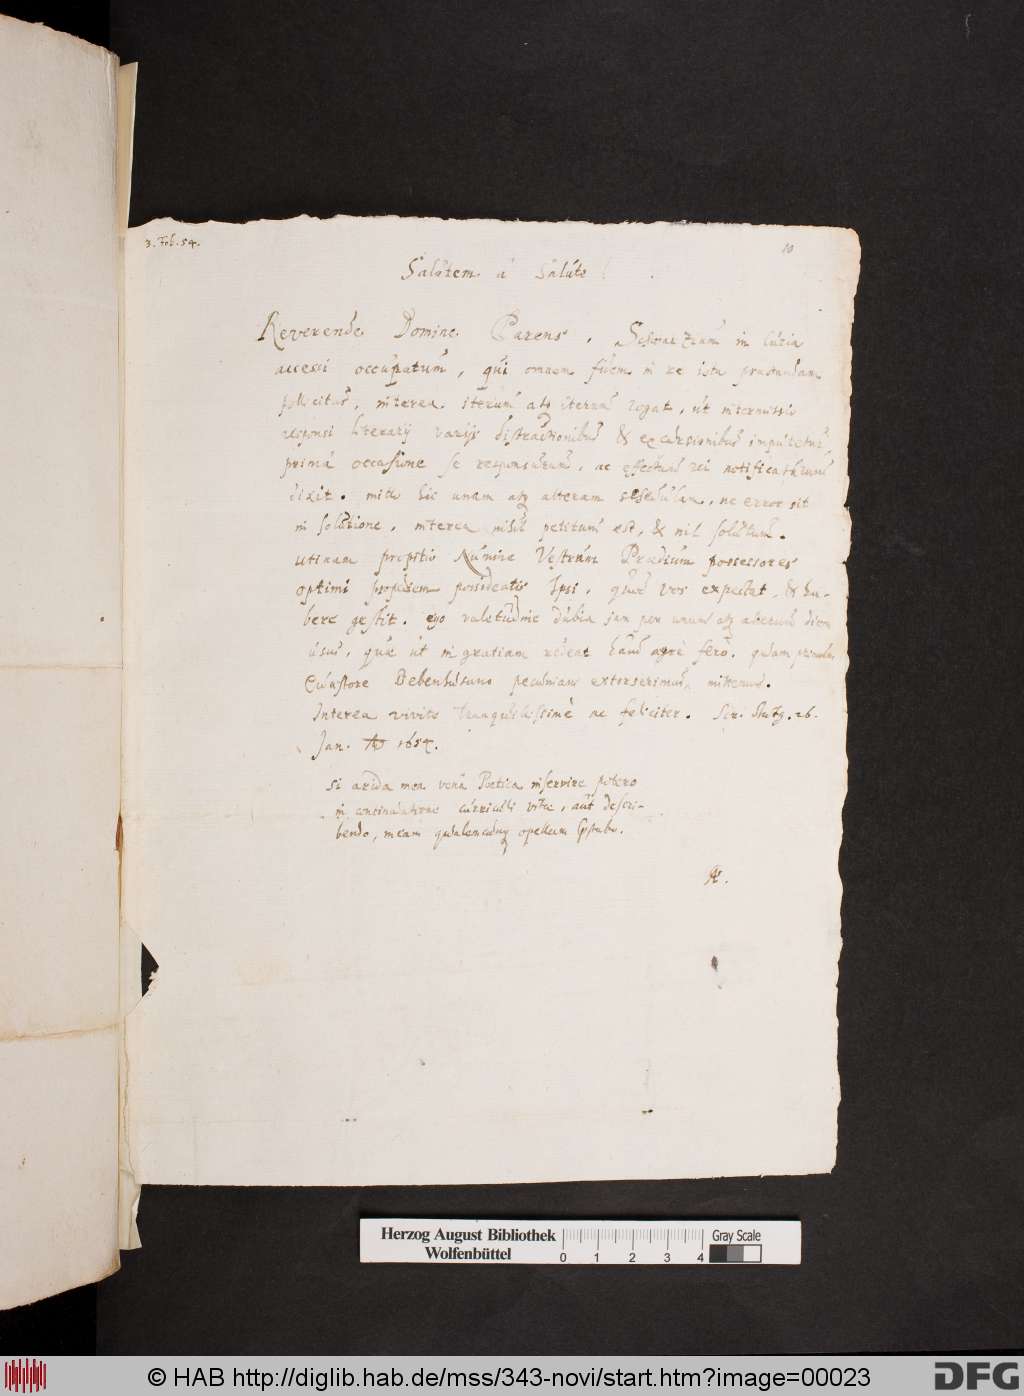 3. Feb. 54.
10
Salutem à Salute!
Reverende Domine Parens, in curia
accessi occupatum, qui omnem fidem in re ista praestandam
pollicitus, interea iterum atq iterum rogat, ut intermissio
responsi literarij varijs distractionibus & excursionibus imputetur,
primâ occasione se responsurum, ac effectum rei notificaturum
dixit. mitto hic unam atq alteram schedulam, ne error sit
in solutione, interea nihil petitum est, & nil solutum.
utinam propitio Numine Vestrum Praedium possessores
optimi possideatis Ipsi, vos expectat, & ha-
bere gestit. ego valetudine dubia jam per unum atq alterum diem
usus, quae ut in gratiam redeat haud aegrè fero. quam primum
Quaestore Bebenhusano pecuniam extorserimus, mittemus.
Interea vivite tranquilissimè ac feliciter. Scr. Stutg. 26.
Jan. Ao 1654.
Si arida mea vena Poetica inservire potero
in continuatione curriculi vitae, aut descri-
bendo, meam qualemcunq opellam
Herzog August Bibliothek
Wolfenbüttel
0 1 2 3 4
Gray Scale
© HAB http://diglib.hab.de/mss/343-novi/start.htm?image=00023
DFG